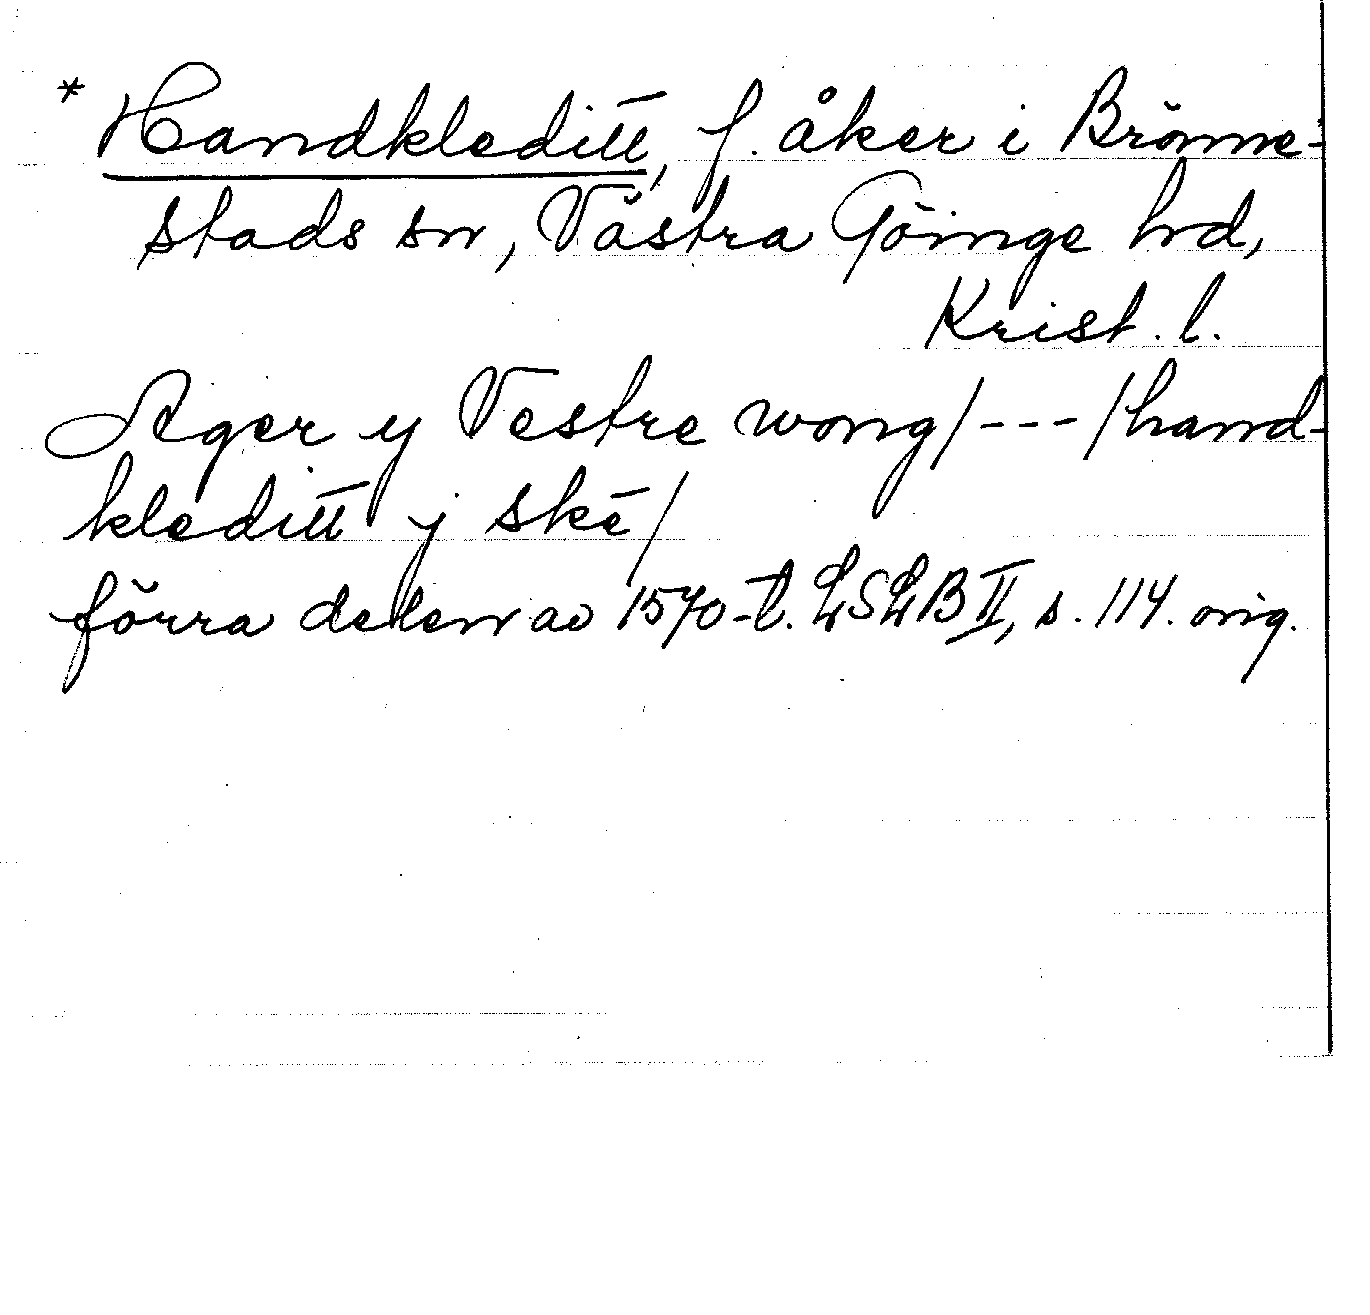 * Handkleditt, f. åker i Brönne-
stads sn, Västra Göinge hrd,
Krist. l.
Ager y Vestre wong/---/hand-
kleditt j skē/
förra delen av 1570-t. LSLB II, s. 114. orig.